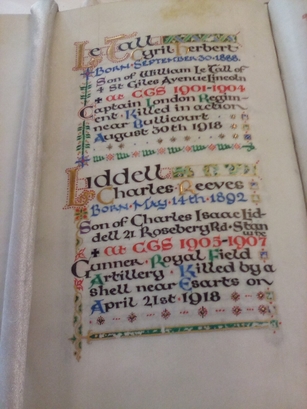 Le Tall
Cyril Herbert
Born September 30. 1888.
Son of William Le Tall of
4 St Giles Avenue Lincoln
✠ At CGS 1901-1904
Captain London Regim-
ent. Killed in action
near Bullicourt
August 30th 1918
Liddell
Charles Reeves
Born. May. 14th. 1892
Son of Charles Isaac Lid-
dell 21 Rosebery Rd. Stan
✠ At CGS 1905-1907
Gunner. Royal Field
Artillery. Killed by a
shell near Esarts on
April 21st 1918